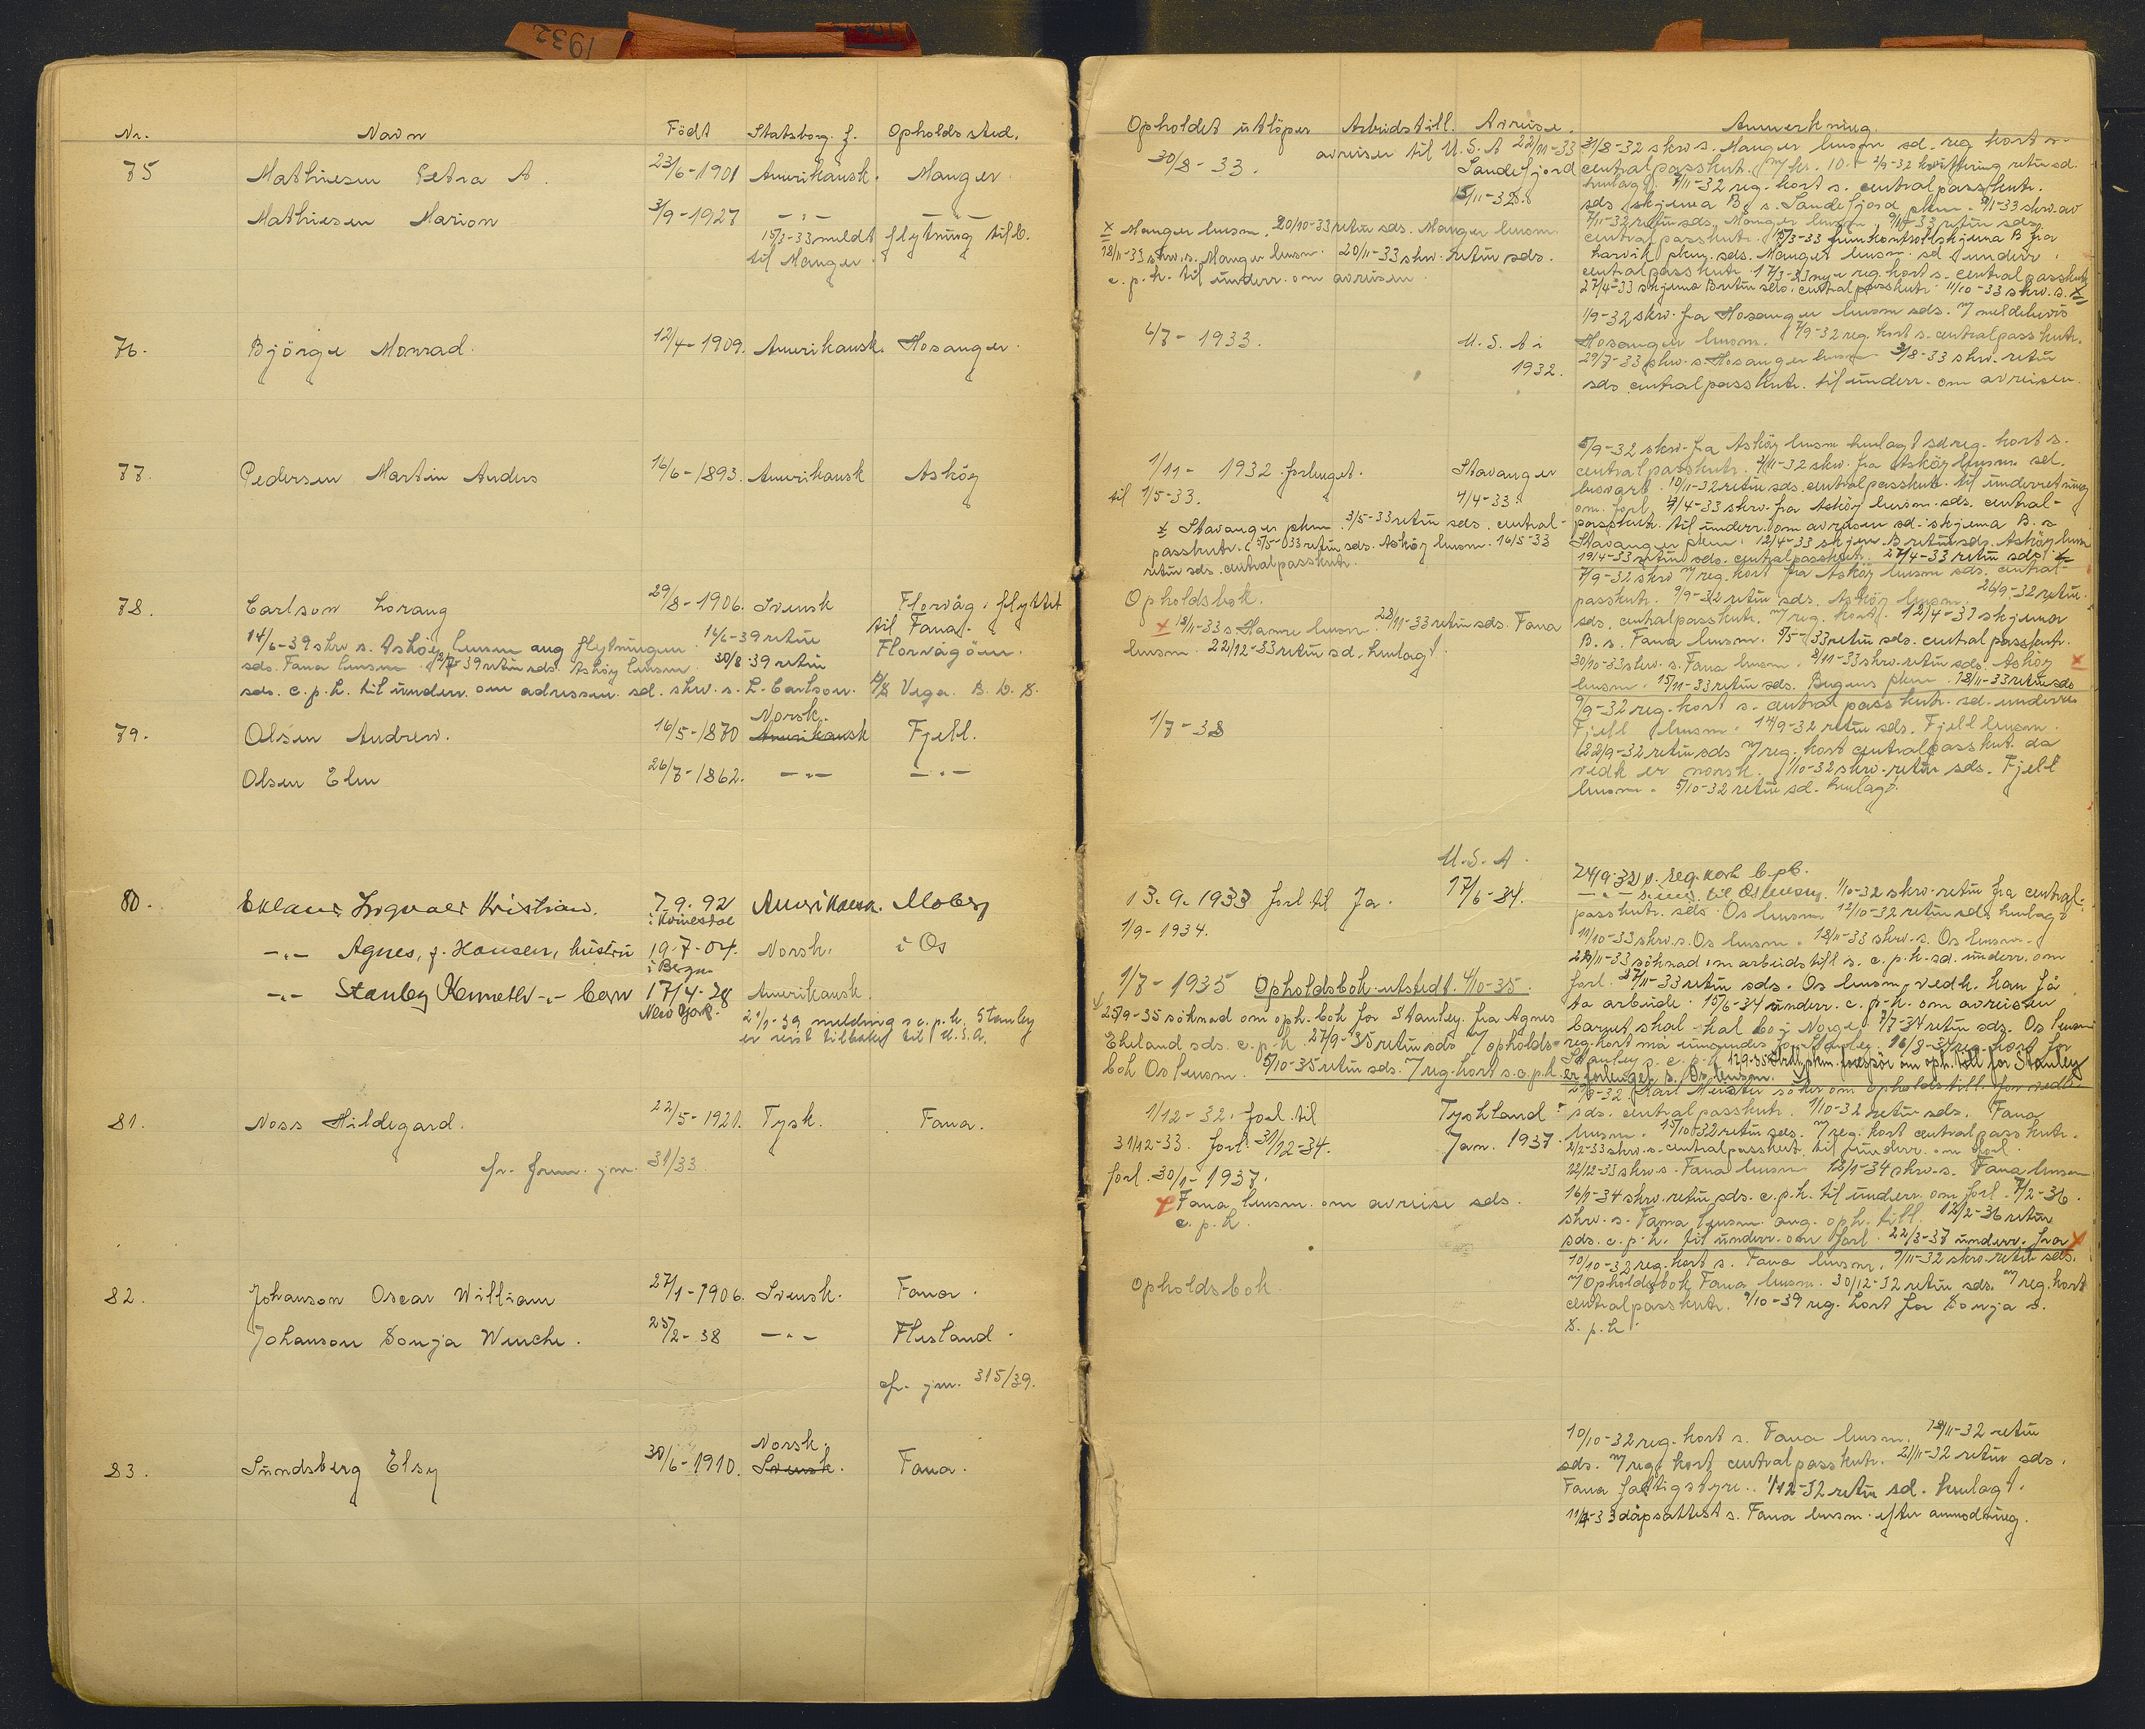 1932
Nr. Navn Födt Statsborg. f. Opholdssted.
75 Mathiesen Petra A. 23/6-1901 Amerikansk. Manger.
Mathiesen Marion 3/9-1927 -"- -"-
15/3-33 meldt flytning tilb.
til Manger.
76. Björge Monrad. 12/4-1909. Amerikansk. Hosanger.
77. Pedersen Martin Anders 16/6-1893. Amerikansk Asköy
78. Carlson Lorang 29/8-1906. Svensk Florvåg. flyttet
til Fana.
14/6-39 skrv s. Asköy lensm ang flytningen. 16/6-39 retur Florvågöen.
sds. Fana lensm. 39 retur sds. Asköy lensm. 30/8-39 retur
sds. c.p.k. til underr. om adressen. sd. skrv. s. L. Carlson. D/S Vega. B.D.S.
Norsk.
79. Olsen Andrew. 16/5-1870 Amerikansk Fjell.
Olsen Elen 26/7-1862. -"- -"-
80. Eklund Ingvald Kristian. 7.9.92 Amerikansk. Moberg
i Kvinesdal
-"- Agnes, f. Hansen, hustru 19-7-04. Norsk. i Os
i Bergen
-"- Stanley Kenneth -"- barn 17/4-28 Amerikansk.
New York.
melding s c.p.k. Stanley
er reist tilbake til U.S.A.
81. Noss Hildegard. 22/5-1921. Tysk. Fana.
cfr. frem. jnr. 31/33.
82. Johanson Oscar William 27/1-1906. Svensk. Fana.
Johanson Sonja Wenche. 25/2-38 -"- Flesland.
cfr. jnr. 315/39.
Norsk.
83. Sundsberg Elsy 30/6-1910. Svensk. Fana.
Opholdet utlöper Arbeidstill. Avreise. Anmerkning.
30/8-33. avreiser til U.S.A 22/11-33
Sandefjord
15/11-32.
31/8-32 skrv s. Manger lensm sd. reg kort s.
centralpasskntr. m/ kr. 10.- 2/9-32 kvittering retur sd.
henlagt. 7/11-32 reg. kort s. centralpasskntr.
sds skjema B. s. Sandefjord pkm. 9/1-33 skrv. av
7/11-32 retur sds. Manger lensm. 9/1-33 retur sds.
centralpasskntr. 15/3-33 fremkontrollskjema B fra
Larvik pkm. sds. Manger lensm. sd underr.
centralpasskntr. 17/3-33 nye reg. kort s. centralpasskntr
27/4-33 skjema B retur sds. centralpasskntr. 11/10-33 skrv. s. x
x Manger lensm. 20/10-33 retur sds. Manger lensm.
18/11-33 skrv. s. Manger lensm. 20/11-33 skrv. retur sds.
c.p.k. til underr. om avreisen
6/7-1933. U.S.A i
1932.
1/9-32 skrv. fra Hosanger lensm sds. m/ meldebevis
Hosanger lensm. 7/9-32 reg. kort s. centralpasskntr.
29/7-33 skrv. s. Hosanger lensm 3/8-33 skrv. retur
sds centralpasskntr. til underr. om avreisen.
1/11- 1932. forlenget. Stavanger
til 1/5-33. 4/4-33.
5/9-32 skrv. fra Asköy lensm henlagt sd reg. kort s.
centralpasskntr. 2/11-32 skrv. fra Asköy lensm sd.
besvart. 10/11-32 retur sds. centralpasskntr. til underretning
om forl. 4/4-33 skrv. fra Asköy lensm. sds. central-
passkntr. til underr. om avreisen sd. skjema B. s
Stavanger pkm. 12/4-33 skjem. B retur sds. Asköy lensm
19/4-33 retur sds. centralpasskntr. 27/4-33 retur sds. x
x Stavanger pkm. 3/5-33 retur sds. central-
passkntr. 5/5-33 retur sds. Asköy lensm. 16/5-33
retur sds. centralpasskntr.
Opholdsbok.
7/9-32 skrv m/ reg. kort fra Asköy lensm sds. central-
passkntr. 9/9-32 retur sds. Asköy lensm. 26/9-32 retur.
sds. centralpasskntr. m/ reg. kort. 12/4-33 skjema
B. s. Fana lensm. 9/5-33 retur sds. centralpasskntr.
30/10-33 skrv. s. Fana lensm. 9/11-33 skrv. retur sds. Asköy x
lensm. 15/11-33 retur sds. Bergens pkm. 18/11-33 retur sds
x 18/11-33 s. Hamre lensm. 28/11-33 retur sds. Fana
lensm. 22/12-33 retur sd. henlagt.
1/7-38
9/9-32 reg. kort s. centralpasskntr. sd. underr.
Fjell lensm. 14/9-32 retur sds. Fjell lensm.
22/9-32 retur sds m/ reg. kort centralpasskntr. da
vedk er norsk. 1/10-32 skrv. retur sds. Fjell
lensm. 5/10-32 retur sd. henlagt.
U.S.A.
13.9.1933 forl. til Ja. 17/6-34.
1/9-1934.
24/9-32 s. reg. kort c.pk.
-"- til Os lensm. 1/10-32 skrv. retur fra central-
passkntr. sds Os lensm 12/10-32 retur sds henlagt
11/10-33 skrv. s. Os lensm. 18/11-33 skrv. s. Os lensm.
22/11-33 söknad om arbeidstill s. c.p.k. sd. underr. om
forl. 27/11-33 retur sds. Os lensm, vedk. kan få
ta arbeide. 15/6-34 underr. c.p.k. om avreisen
barnet skal bo i Norge. 7/7-34 retur sds. Os lensm
reg. kort må innsendes for Stanley. 16/8-34 reg. kort for
Stanley s. c.p.k. 12.9-35 pkm. forespör om oph. till for Stanley
er forlenget s. Os lensm.
1/7-1935 Opholdsbok utstedt 4/10-35.
x 25/9-35 söknad om oph. bok for Stanley. fra Agnes
Ekeland sds. c.p.k. 27/9-35 retur sds m/ opholds-
bok Os lensm. 5/10-35 retur sds. m/ reg. kort s. c.p.k.
1/12-32. forl. til Tyskland
31/12-33. forl. 31/12-34. Jan. 1937.
forl. 30/1-1937.
x Fana lensm. om avreise sds.
c.p.k.
Karl söker om opholdstill. for vedk.
sds. centralpasskntr. 1/10-32 retur sds. Fana
lensm. 15/10-32 retur sds. m/ reg. kort centralpasskntr.
2/2-33 skrv. s. centralpasskntr. til underr. om forl.
22/12-33 skrv. s. Fana lensm 12/1-34 skrv. s. Fana lensm
16/1-34 skrv. retur sds. c.p.k. til underr. om forl. 7/2-36.
skrv. s. Fana lensm. ang. oph. till. 12/2-36 retur
sds. c.p.k. til underr. om forl. 22/3-37 underr. fra x
Opholdsbok.
10/10-32 reg. kort s. Fana lensm. 9/11-32 skrv. retur sds.
m/ Opholdsbok Fana lensm. 30/12-32 retur sds. m/ reg. kort
centralpasskntr. 9/10-39 reg. kort for Sonja s.
S.p.k.
10/10-32 reg. kort s. Fana lensm. 12/11-32 retur
sds. m/ reg. kort centralpasskntr. 21/11-32 retur sds.
Fana fattigstyre. 1/12-32 retur sd. henlagt.
11/4-33 dåpsattest s. Fana lensm. efter anmodning.